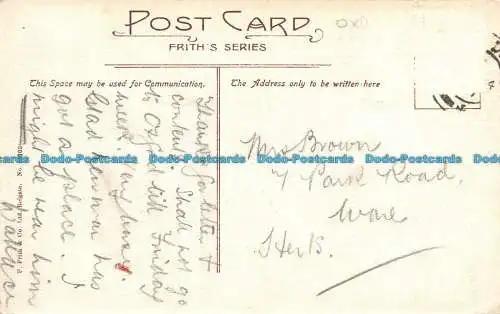 POST CARD
FRITH'S SERIES
This Space may be used for Communication.
The Address only to be written here
Thanks for letter &
content. Shall not go
to Oxford till Friday
week. Very busy.
Glad Newman has
got a place. I
might be near him
Wallace
Mrs Brown
7 Park Road,
Ware
Herts.
Dodo-Postcards Dodo-Postcards Dodo-Postcards Dodo-Postcards